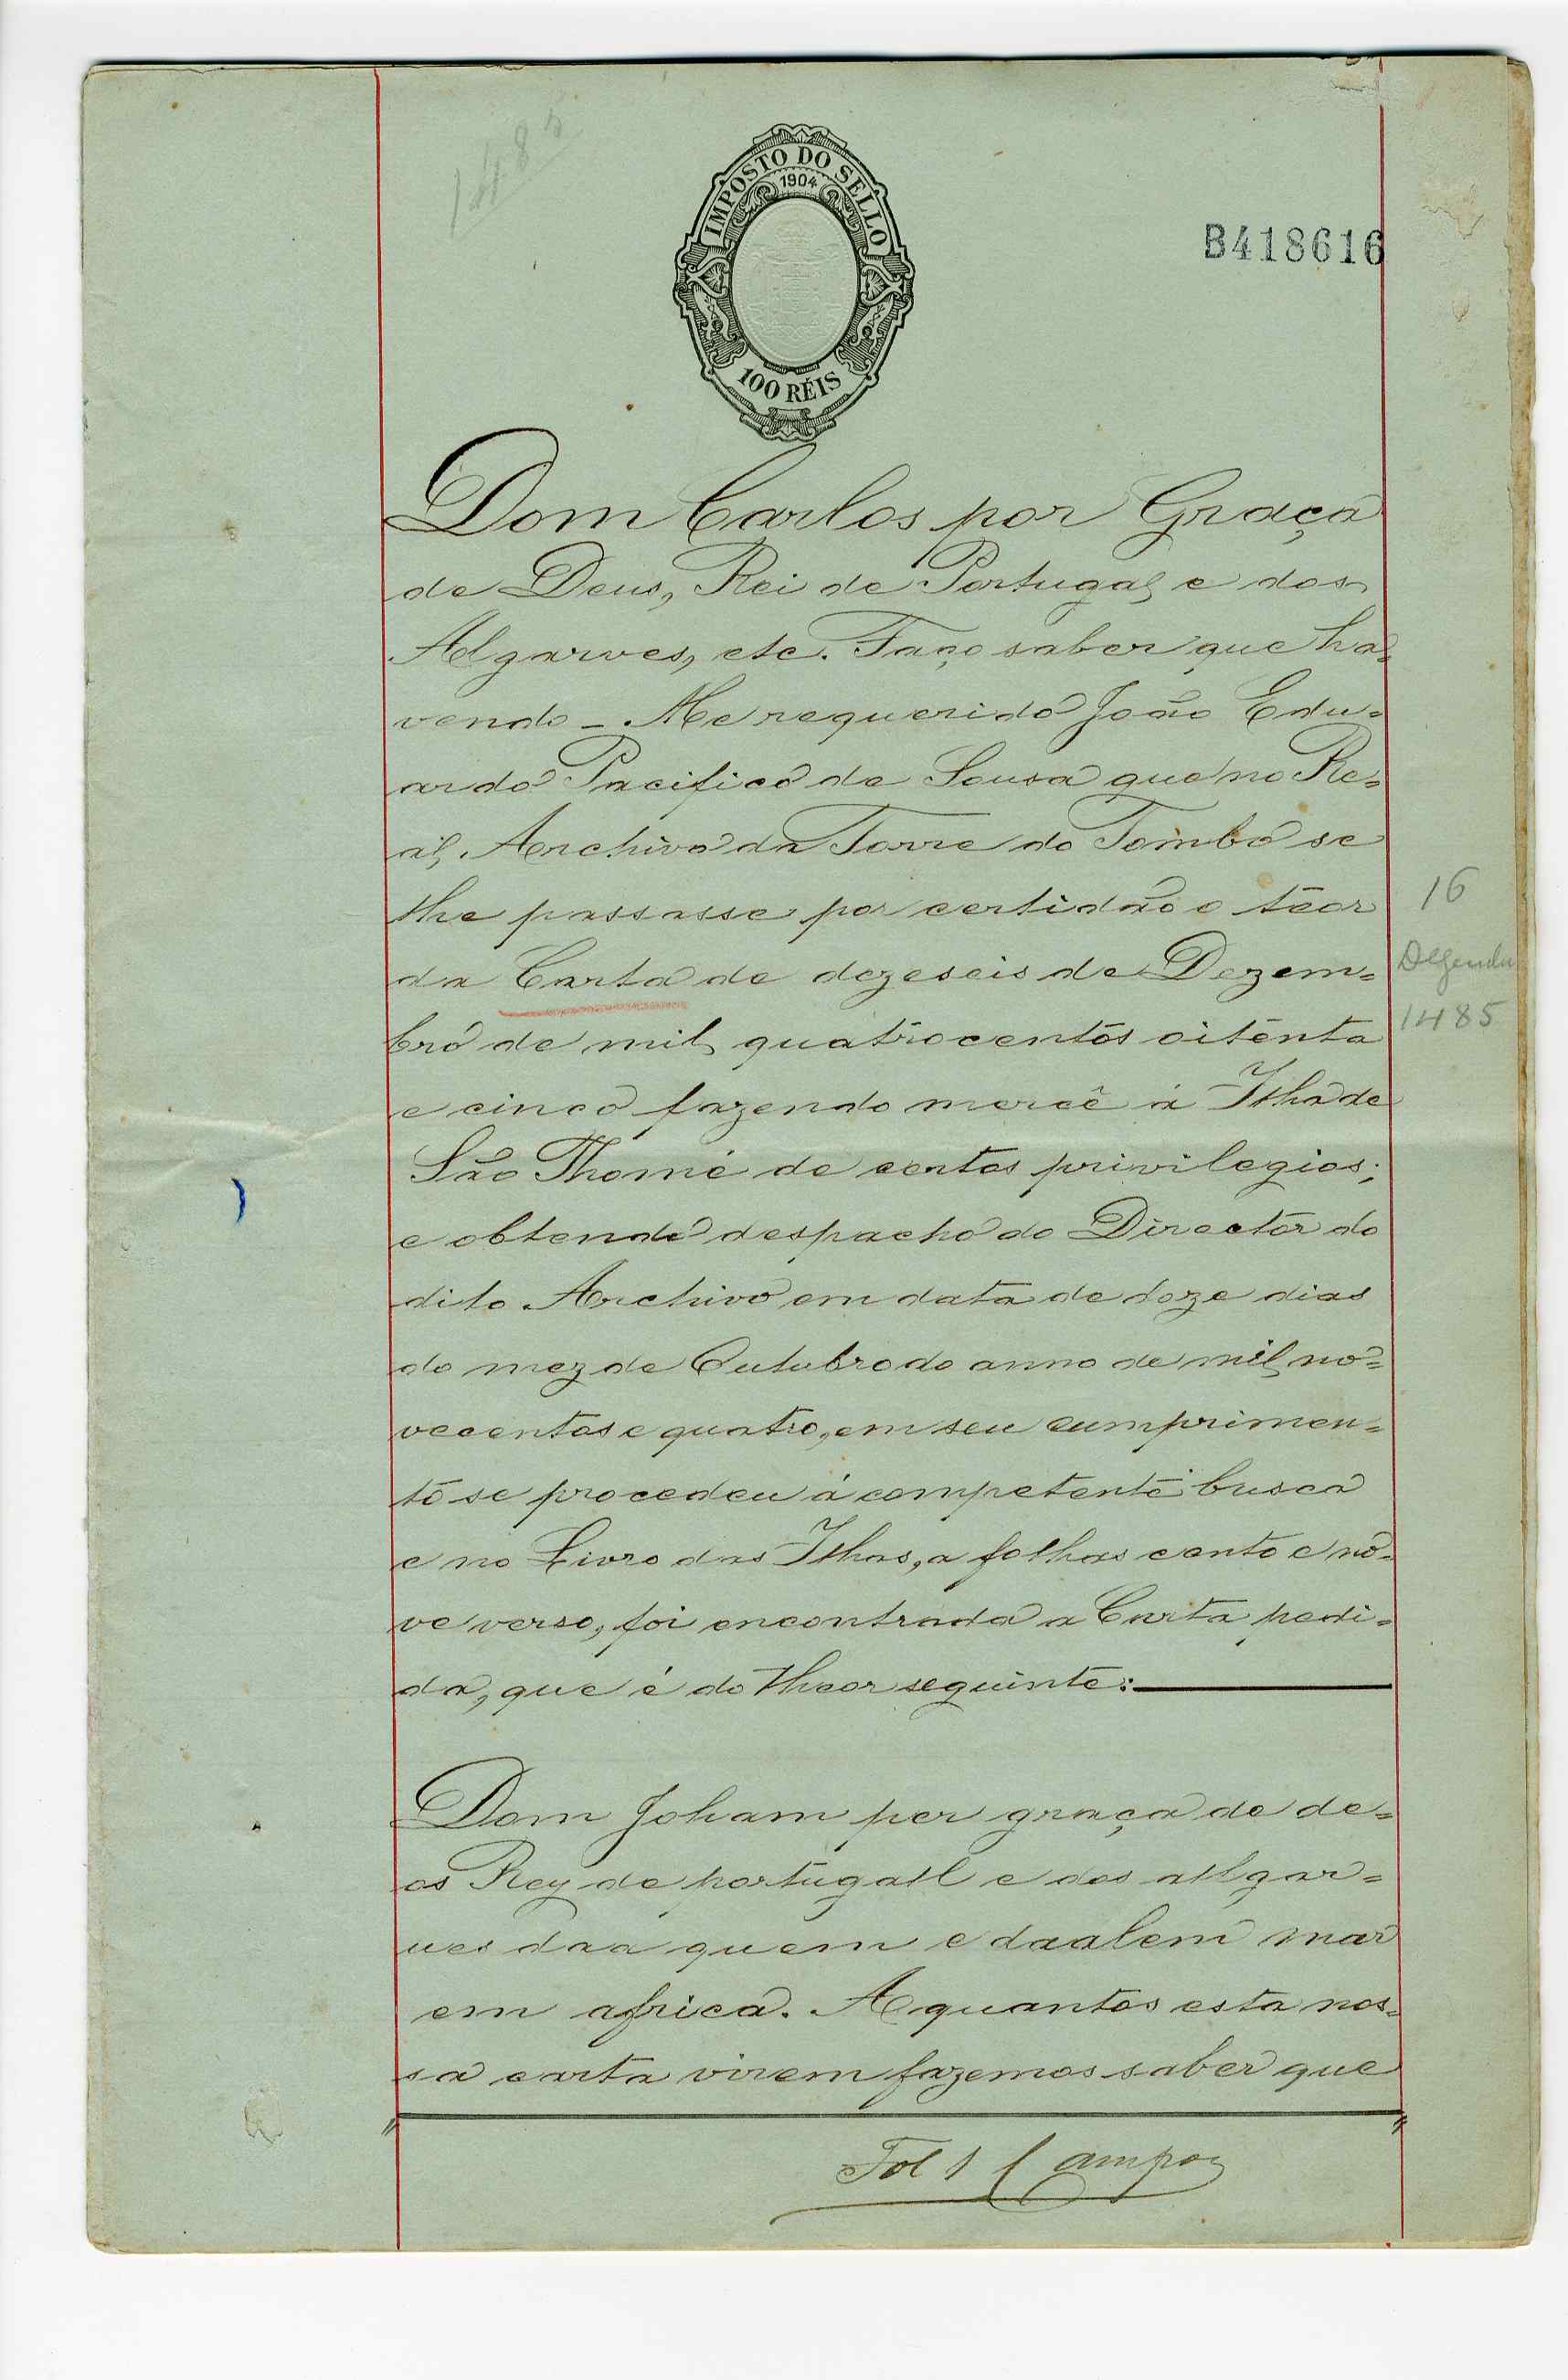 1485
IMPOSTO DO SELLO
1904
100 RÉIS
B418616
Dom Carlos por Graça
de Deus, Rei de Portugal e dos
Algarves, etc. Faço saber que ha=
vendo-Me requerido João Edu=
ardo Pacifico de Sousa que no Re=
al Archivo da Torre do Tombo se
lhe passasse por certidão o teor
da Carta de dezeseis de Dezem=
bro de mil quatrocentos oitenta
e cinco fazendo mercê á Ilha de
São Thomé de certos privilegios;
e obtendo despacho do Director do
dito Archivo em data de doze dias
do mez de Outubro do anno de mil no=
vecentos e quatro, em seu cumprimen=
to se procedeu á competente busca
e no Livro das Ilhas, a folhas cento e no=
ve verso, foi encontrada a Carta pedi=
da, que é do theor seguinte:
16
Dezembro
1485
Dom Joham per graça de de=
os Rey de portugall e dos allgar=
ues daa quem e daalem mar
em africa. A quantos esta nos=
sa carta virem fazemos saber que
Fol 1 Campos